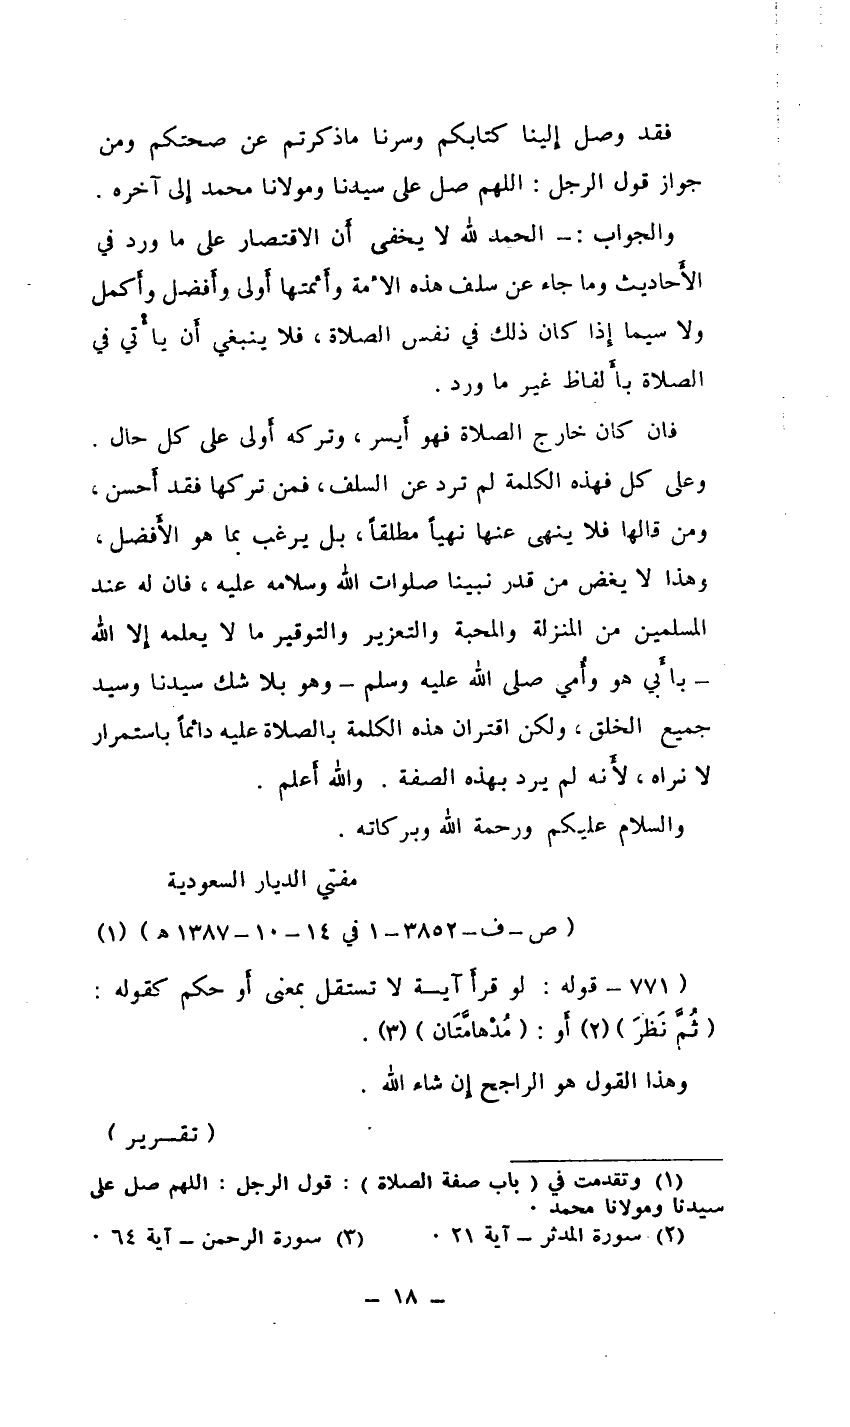 فقد وصل إلينا كتابكم وسرنا ماذكرتم عن صحتكم ومن
جواز قول الرجل : اللهم صل على سيدنا ومولانا محمد إلى آخره .
والجواب :ـ الحمد لله لا يخفى أن الاقتصار على ما ورد في
الأحاديث وما جاء عن سلف هذه الأمة وأئمتها أولى وأفضل وأكمل
ولا سيما إذا كان ذلك في نفس الصلاة ، فلا ينبغي أن يأتي في
الصلاة بألفاظ غير ما ورد .
فان كان خارج الصلاة فهو أيسر ، وتركه أولى على كل حال .
وعلى كل فهذه الكلمة لم ترد عن السلف ، فمن تركها فقد أحسن ،
ومن قالها فلا ينهى عنها نهياً مطلقاً ، بل يرغب بما هو الأفضل ،
وهذا لا يغض من قدر نبينا صلوات الله وسلامه عليه ، فان له عند
المسلمين من المنزلة والمحبة والتعزير والتوقير ما لا يعلمه إلا الله
ـ بأبي هو وأُمي صلى الله عليه وسلم ـ وهو بلا شك سيدنا وسيد
جميع الخلق ، ولكن اقتران هذه الكلمة بالصلاة عليه دائماً باستمرار
لا نراه ، لأنه لم يرد بهذه الصفة . والله أعلم .
والسلام عليكم ورحمة الله وبركاته .
مفتي الديار السعودية
( ص ـ ف ـ ٣٨٥٢ ـ ١ في ١٤ ـ ١٠ ـ ١٣٨٧ هـ ) (١)
( ٧٧١ ـ قوله : لو قرأ آيـة لا تستقل بمعنى أو حكم كقوله :
( ثُمَّ نَظَرَ ) (٢) أو : ( مُدْهامَّتَان ) (٣) .
وهذا القول هو الراجح إن شاء الله .
( تقـرير )
(١) وتقدمت في ( باب صفة الصلاة ) : قول الرجل : اللهم صل على
سيدنا ومولانا محمد ٠
(٢) سورة المدثر ـ آية ٢١ ٠ (٣) سورة الرحمن ـ آية ٦٤ ٠
ـ ١٨ ـ